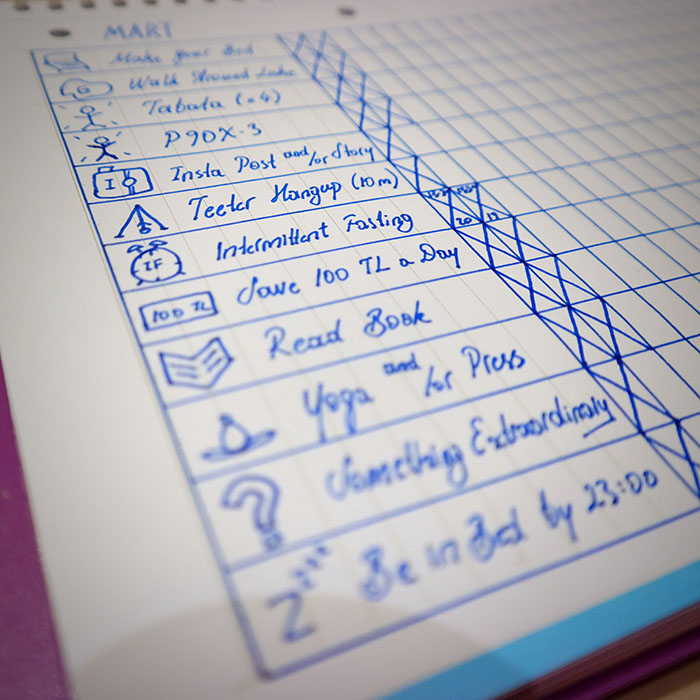 MART
Make your Bed
Walk Around Lake
Tabata (x4)
P90X-3
I Insta Post and/or Story
Teeter Hangup (10m)
IF Intermittent Fasting
20 17
100 TL Save 100 TL a Day
Read Book
Yoga and/or Press
? Something Extraordinary
Zzzz Be in Bed by 23:00